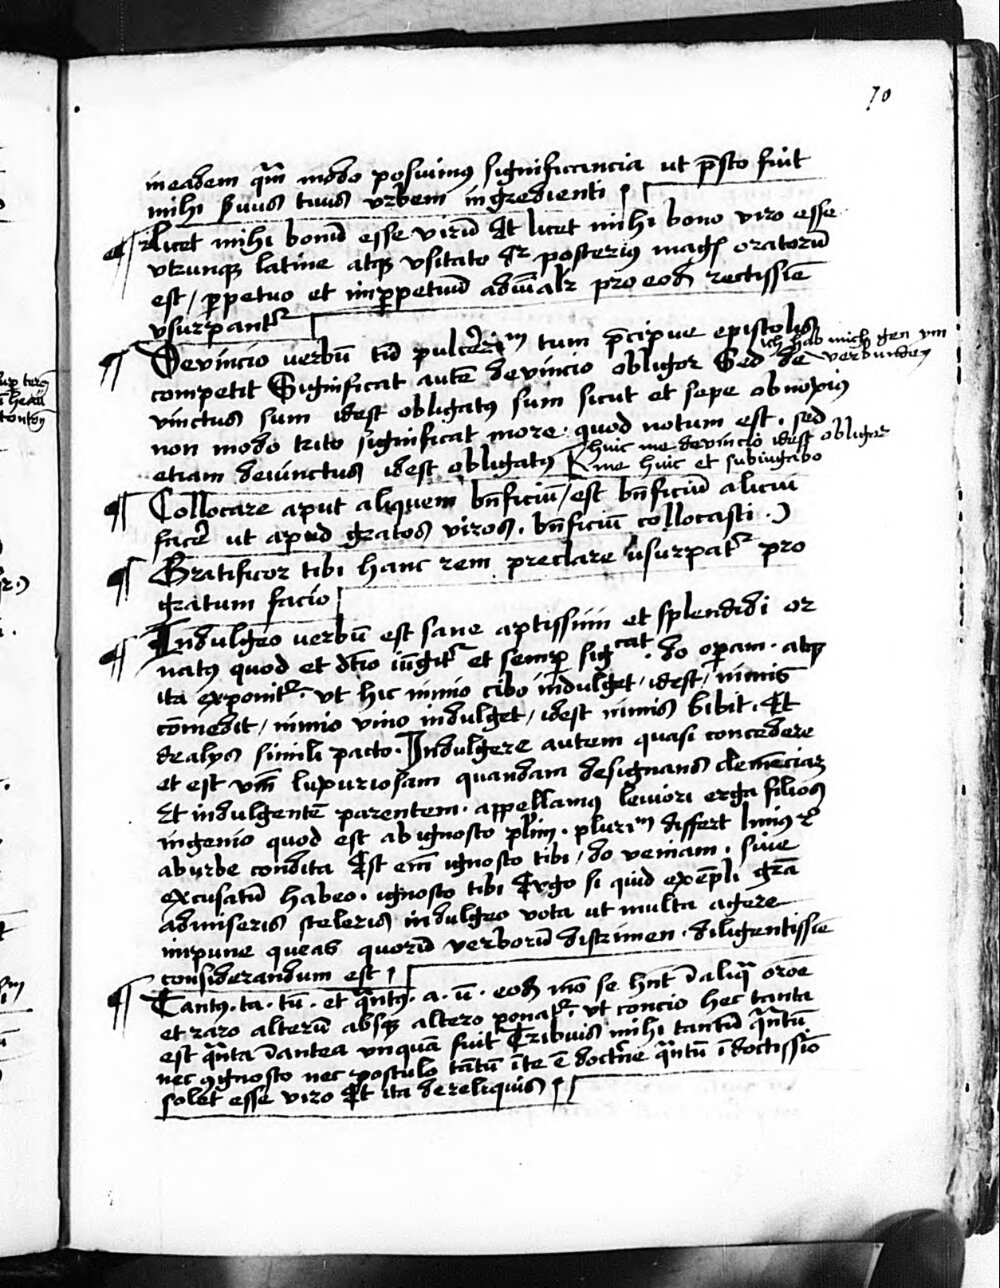 70
ineadem qm̄ modo posuimus significancia ut p̄sto fuit
mihi suus tuus urbem ingredienti
Licet mihi bonū esse virū Et licet mihi bono viro esse
vtrunq latine atq vsitato posterius magis oratorū
est / ppetuo et inppetuū pro eod rectissīe
vsurpantr
Devincio verbū tum p̄cipue epistolis
ich hab mich gen ym
competit Significat autē devincio obligor Sed de
verbunden
vinctus sum idest obligatus sum sicut et sepe obnoxius
non modo trito significat more quod notum est . sed
etiam deuinctus idest obligatus
huic me devincio idest obligor
me huic et subiugabo
Collocare aput aliquem bn̄ficiū / est bn̄ficiū alicui
facere ut apud gratos viros . bn̄ficiū collocasti
Gratificor tibi hanc rem preclare usurpatr pro
gratum facio
Indulgeo verbū est sane aptissimi et splendidi or
natus quod et dtīo iūgitr et semp sigcat . do opam . atq
ita exponitr . vt hic nimio cibo indulget / idest / nimis
cōmedit / nimio vino indulget / idest nimis bibit . Et
de alys simili pacto . Indulgere autem quasi concedere
et est luxuriosam quandam designans clemēciam
Et indulgentē parentem . appellamus leuiori erga filios
ingenio quod est ab ignosco plurimū differt liuius
ab urbe condita Est em̄ ignosco tibi / do veniam . siue
excusatū habeo . ignosco tibi Ergo si quid exēpli grā
admiseris sceleris indulgeo vota ut multa agere
impune queas quorū verborū discrimen . diligentissīe
considerandum est
Tantus . ta . tū . et qntus . a . ū . eod mo se hnt
et raro alterū absq altero ponatr . vt concio hec tanta
est qnta antea vnquam fuit Tribuis mihi tantū qntū
nec cognosco nec postulo tantū qntū ī doctissīo
solet esse viro Et ita dereliquis